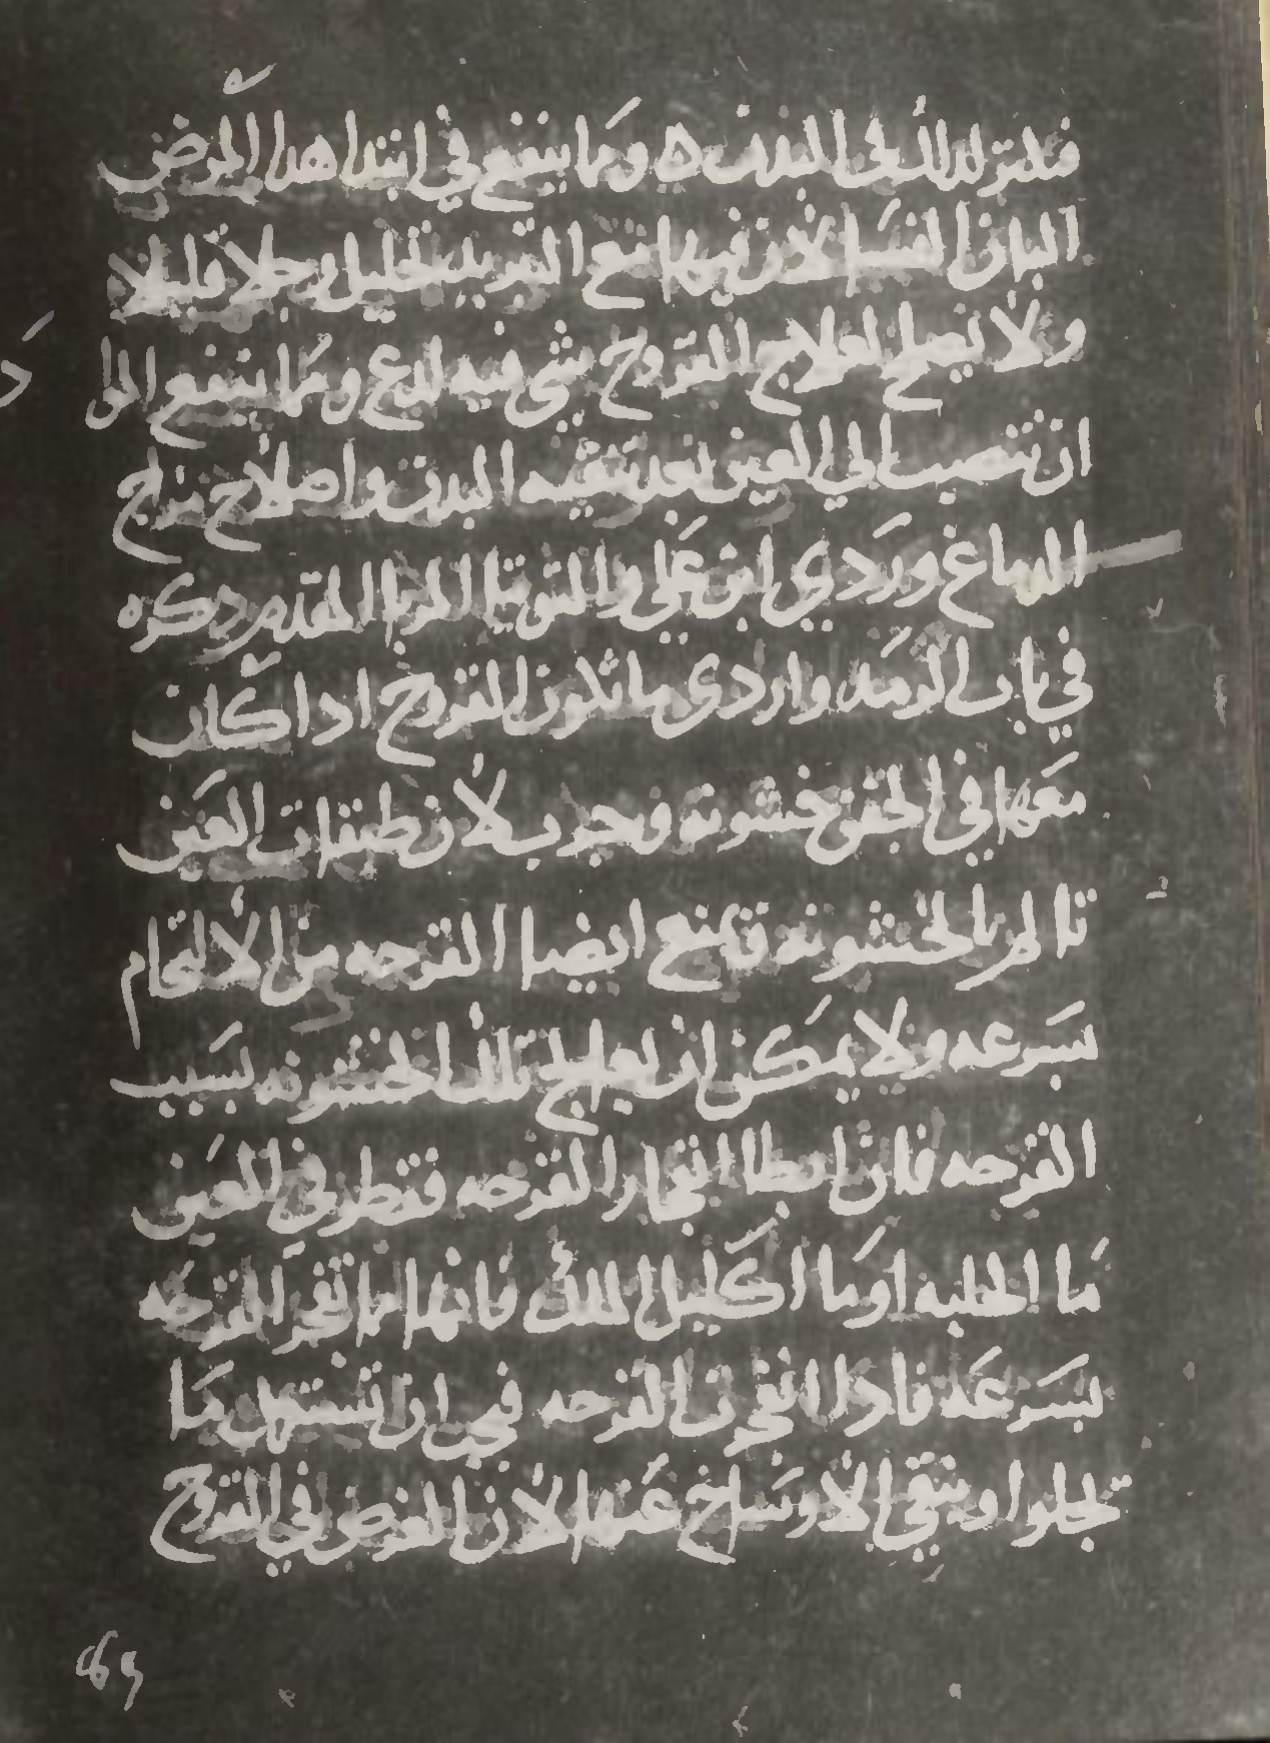 فدبر لذلك في البدن ه ومما ينفع في ابتدا هذا المرض
البان النسا لان فيها مع التبريد تحليل وجلا قليلا
ولا يصلح لعلاج القروح شي فيه لدع ومما ينفع الى
ان تنصب الى العين بعد تنقيه البدن واصلاح مزاج
الدماغ وردي ابن علي والتوتيا المربا المقدم ذكره
في باب الرمد واردى ما تكون القروح ادا كان
معها في الجفن خشونه وجرب لان طبقات العين
تالم بالخشونه فتمنع ايضا القرحه من الالتحام
بسرعه ولا يمكن ان يعالج تلك الخشونه بسبب
القرحه فان ابطا انفجار القرحه فقطر في العين
ما الحلبه او ما اكليل الملك فانهما مما تفجر القرحه
بسرعه فادا انفجرت القرحه فيجب ان تستعمل ما
تجلوا وينقي الاوساخ عنها لان الغرض في القروح
69